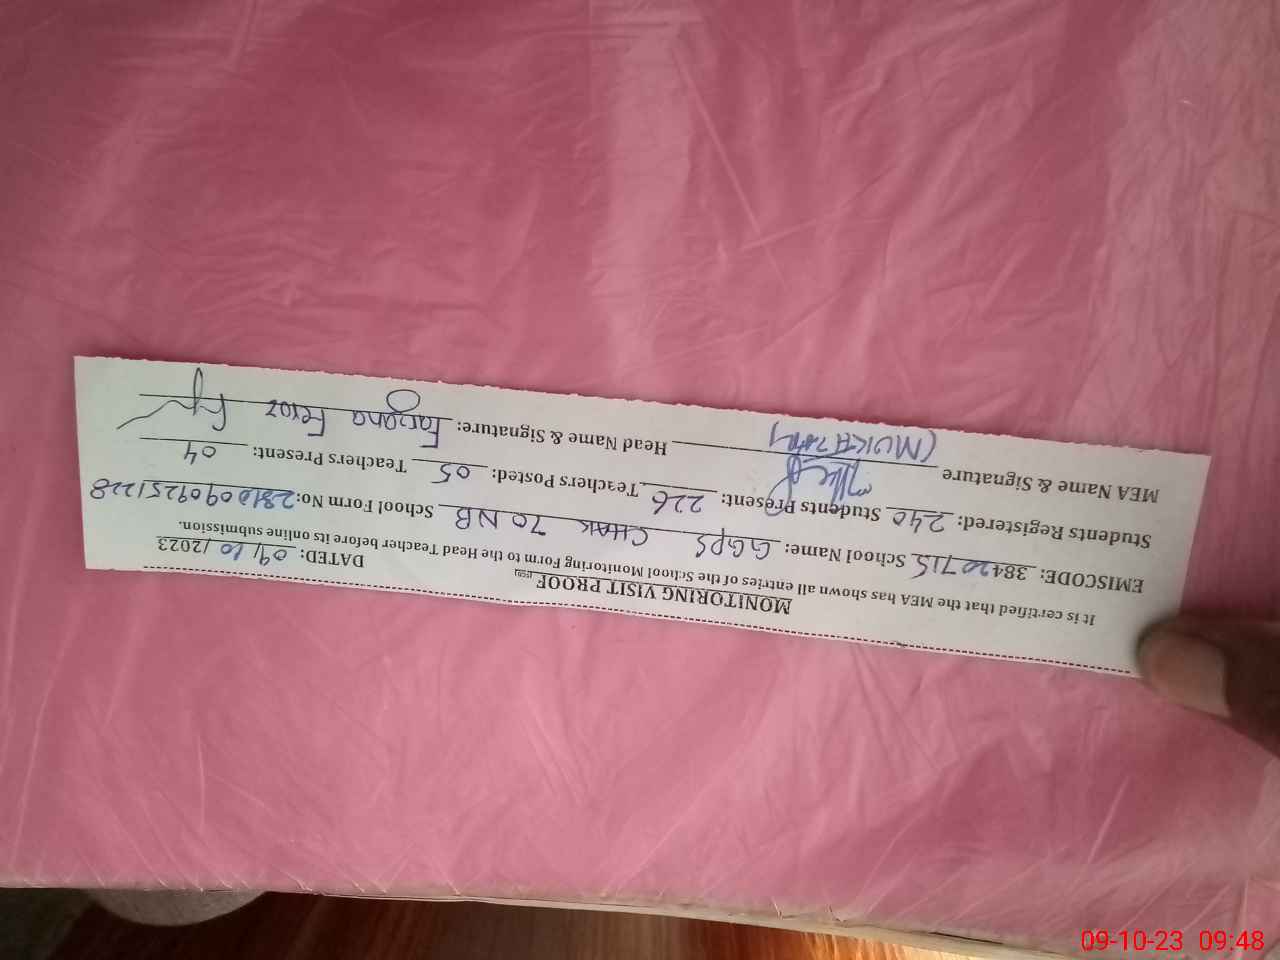 MONITORING VISIT PROOF
DATED: 09/10/2023
It is certified that the MEA has shown all entries of the School Monitoring Form to the Head Teacher before its online submission.
EMISCODE: 38420715 School Name: GGPS CHAK 70 NB School Form No: 28100909251228
Students Registered: 240 Students Present: 226 Teachers Posted: 05 Teachers Present: 04
MEA Name & Signature Head Name & Signature: Farzana Feroz
09-10-23 09:48